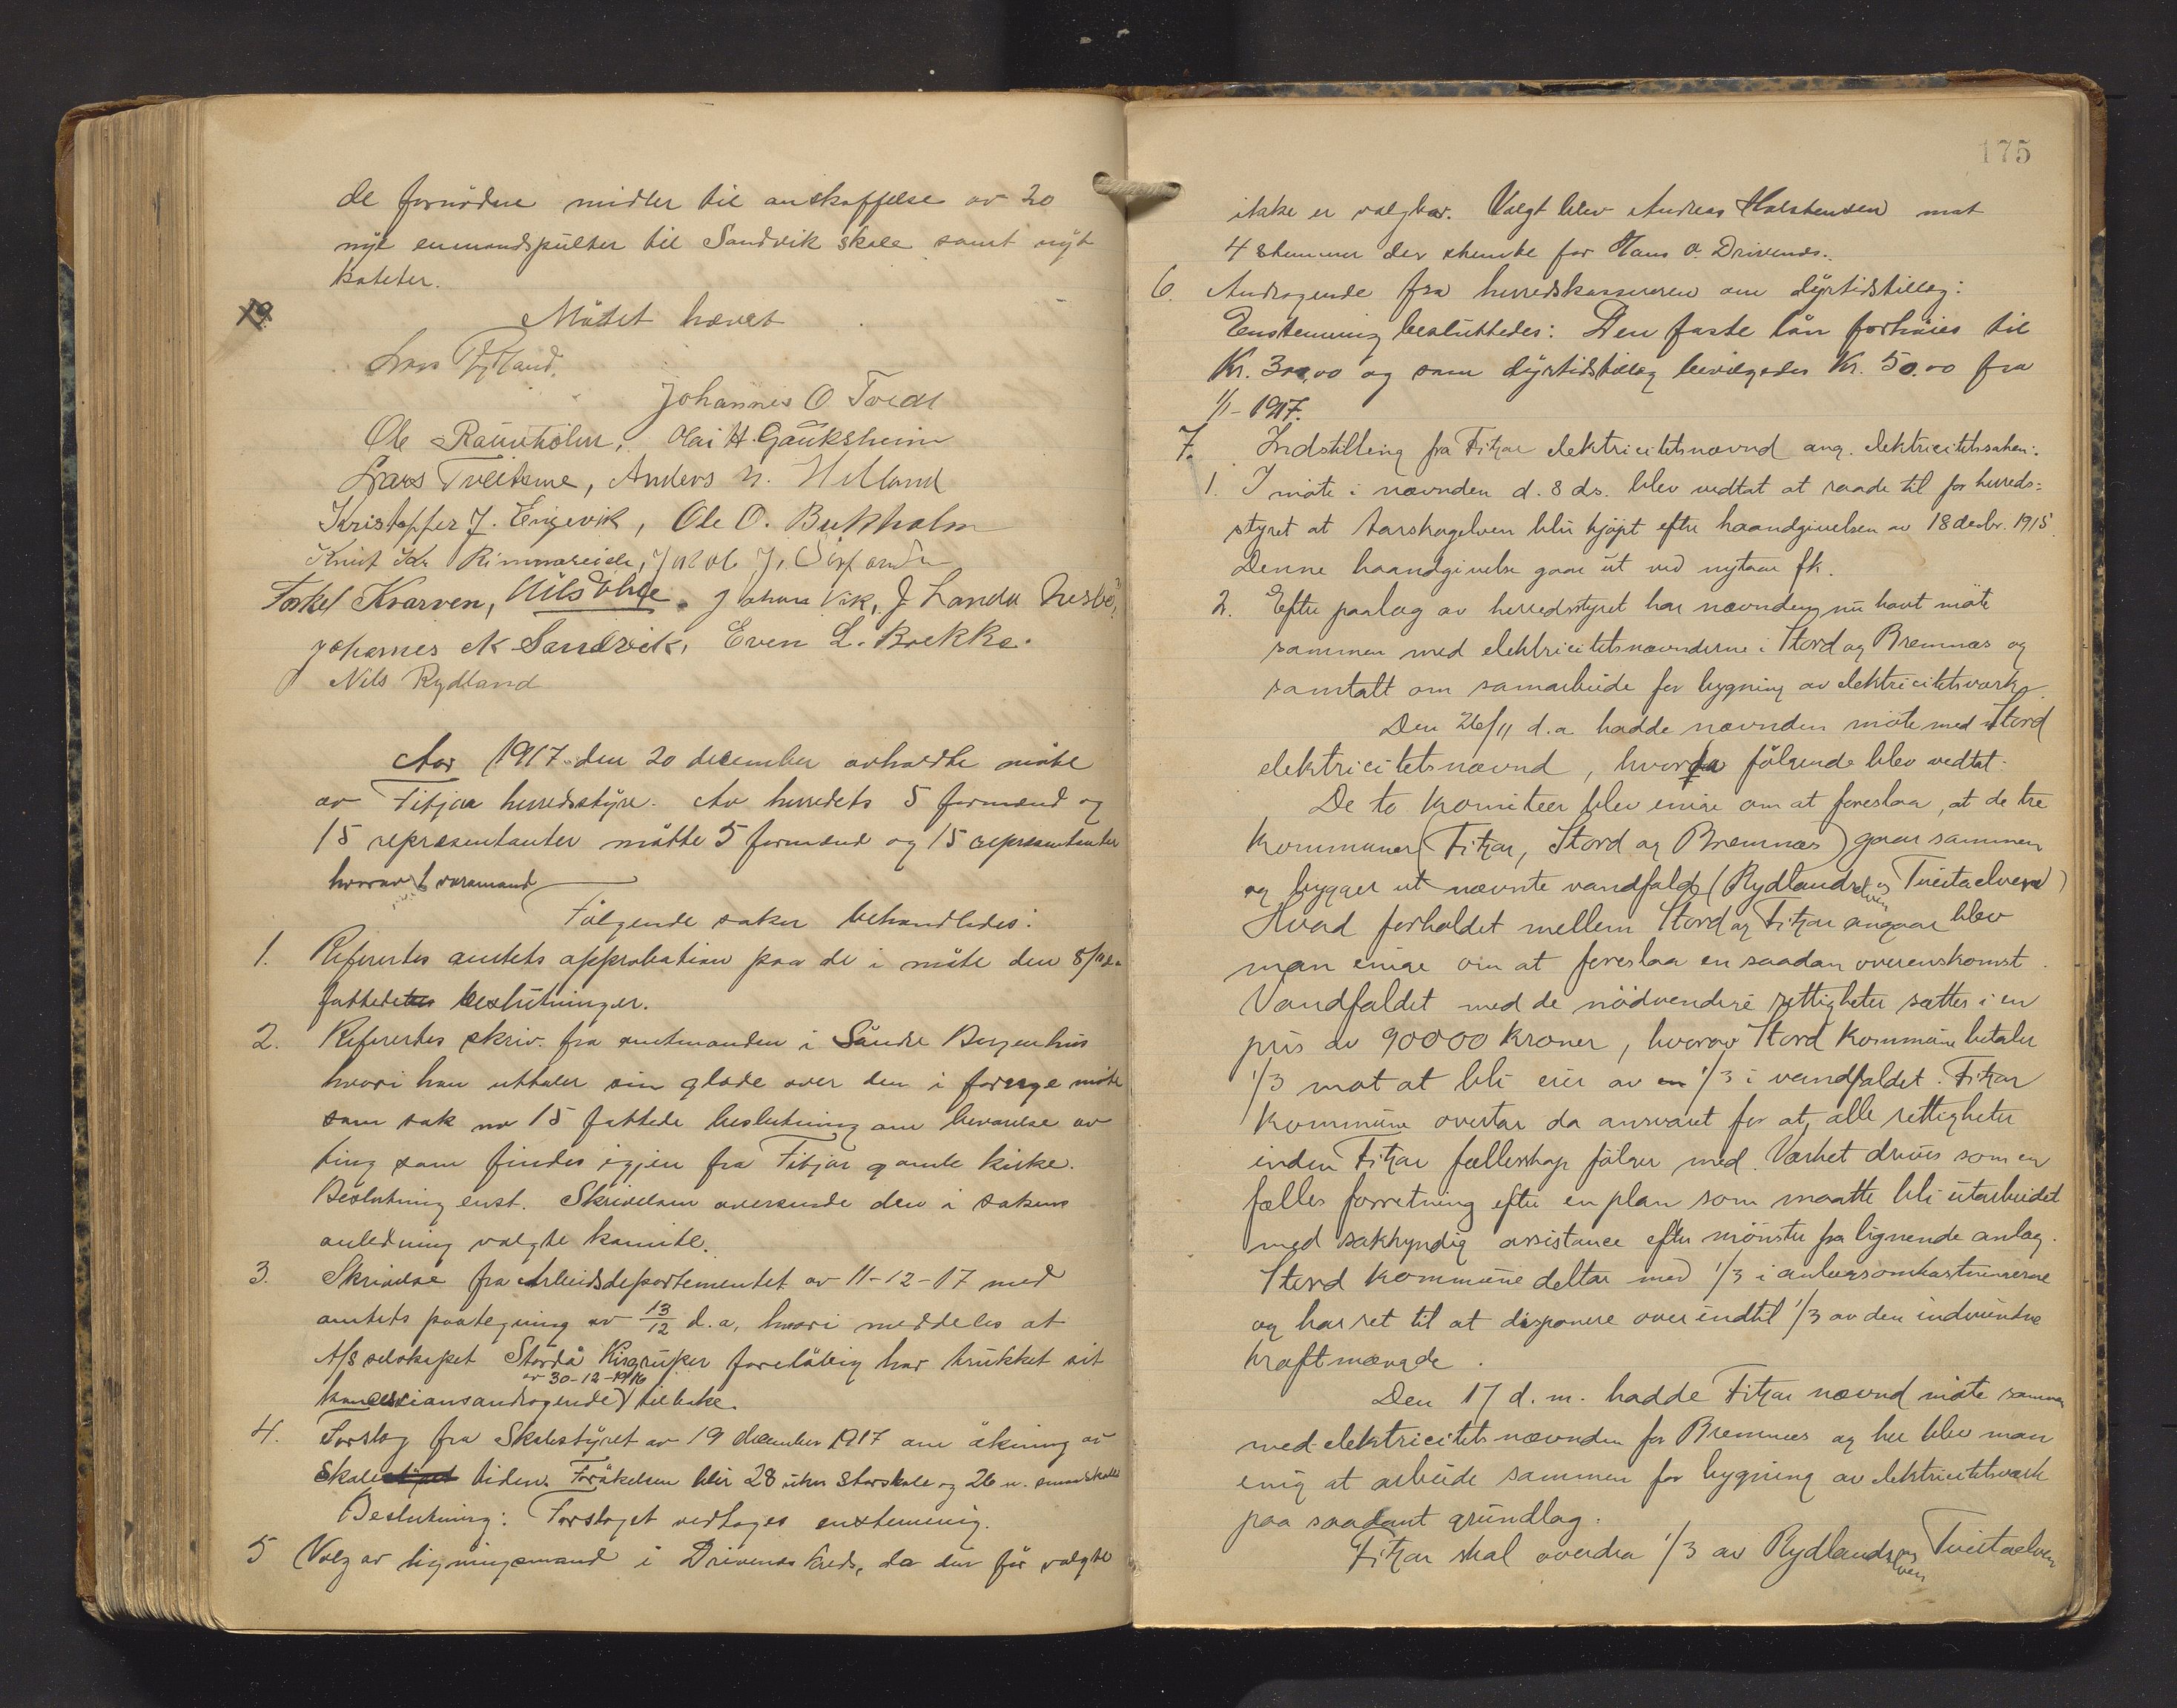 de fornödne midler til anskaffelse av 20
nye enmandspulter til Sandvik skole samt nyt
kateter.
19.
Mötet hævet
Lars Rydland.
Johannes O Tveit
Ole Raunholm, Olai H. Gauksheim
Lars Tveitene, Anders N. Helland
Kristoffer J. Engevik, Ole O. Bukholm
Knut Kr Rimmereide, Jakob J.
Torkel Kvarven, Nils Johan Vik, J Landa Nesbö,
Johannes A Sandvik, Even L. Brekke.
Nils Rydland
Aar 1917 den 20 december avholdte möte
av Fitjar herredsstyre. Av herredets 5 formænd og
15 repræsentanter mötte 5 formænd og 15 repræsentanter
hvorav 1 varamand
Fölgende saker behandledes:
1. Referertes amtets approbation paa de i möte den 8/11 d.a
fattede beslutninger.
2. Referertes skriv. fra amtmanden i Söndre Bergenhus
hvori han uttaler sin glæde over den i forrige möte
som sak no 15 fattede beslutning om bevarelse av
ting som findes igjen fra Fitjar gamle kirke.
Beslutning enst. Skrivelsen oversende den i sakens
anledning valgte komite.
3. Skrivelse fra Arbeidsdepartementet av 11-12-17 med
amtets paategning av 13/12 d.a, hvori meddeles at
A/S selskapet Stordö Kisgruper foreløbig har trukket sit
av 30-12-1916
koncessionsandragende tilbake.
4. Forslag fra Skolestyret av 19 december 1917 om ökning av
skolestyret tiden. Forökelsen blir 28 uker storskole og 26 u. smaaskole
Beslutning: Forslaget vedtages enstemmig.
5 Valg av ligningsmand i Drivenes kreds, da den för valgte
175
ikke er valgbar. Valgt blev Andreas Halstensen mot
4 stemmer der stemte for Hans O. Drivenes.
6. Andragende fra herredskassereren om dyrtidstillæg:
Enstemmig besluttedes: Den faste lön forhöies til
Kr. 300,00 og som dyrtidstillæg bevilgedes Kr. 50.00 fra
1/1-1917.
7. Indstilling fra Fitjar elektricitetsnævnd ang. elektricitetssaken:
1. I möte i nævnden d. 8 ds. blev vedtat at raade til for herreds=
styret at Aarskogelven blir kjöpt efter haandgivelsen av 18 decbr. 1915
Denne haandgivelse gaar ut ved nytaar fk.
2. Efter paalæg av herredsstyret har nævnden nu havt möte
sammen med elektricitetsnævnderne i Stord og Bremnæs og
samtalt om samarbeide for bygning av elektricitetsværk.
Den 26/11 d.a hadde nævnden möte med Stord
elektricitetsnævnd, hvor fölgende blev vedtat:
De to komiteer blev enige om at foreslaa, at de tre
kommuner (Fitjar, Stord og Bremnæs) gaar sammen
og bygger ut nævnte vandfald (Rydlandselven og Tveitaelven)
Hvad forholdet mellem Stord og Fitjar angaar blev
man enige om at foreslaa en saadan overenskomst.
Vandfaldet med de nödvendige rettigheter sættes i en
pris av 90000 kroner, hvorav Stord kommune betaler
1/3 mot at bli eier av en 1/3 i vandfaldet. Fitjar
kommune overtar da ansvaret for at alle rettigheter
inden Fitjar fællesskap fölger med. Værket drives som en
fælles forretning efter en plan som maatte bli utarbeidet
med sakkyndig assistance efter mönster fra lignende anlæg.
Stord kommune deltar med 1/3 i anlægsomkostningerne
og har ret til at disponere over indtil 1/3 av den indvundne
kraftmængde.
Den 17 d.m. hadde Fitjar nævnd möte sammen
med elektricitetsnævnden for Bremnes og her blev man
enig at arbeide sammen for bygning av elektricitetsværk
paa saadant grundlag:
Fitjar skal overdra 1/3 av Rydlandselven og Tveitaelven